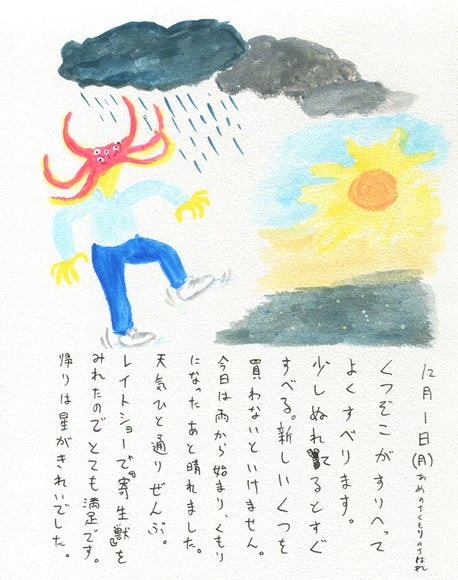 12月1日(月)あめのちくもりのちはれ
くつぞこがすりへって
よくすべります。
少しぬれてるとすぐ
すべる。新しいくつを
買わないといけません。
今日は雨から始まり、くもり
になったあと晴れました。
天気ひと通りぜんぶ。
レイトショーで『寄生獣』を
みれたのでとても満足です。
帰りは星がきれいでした。